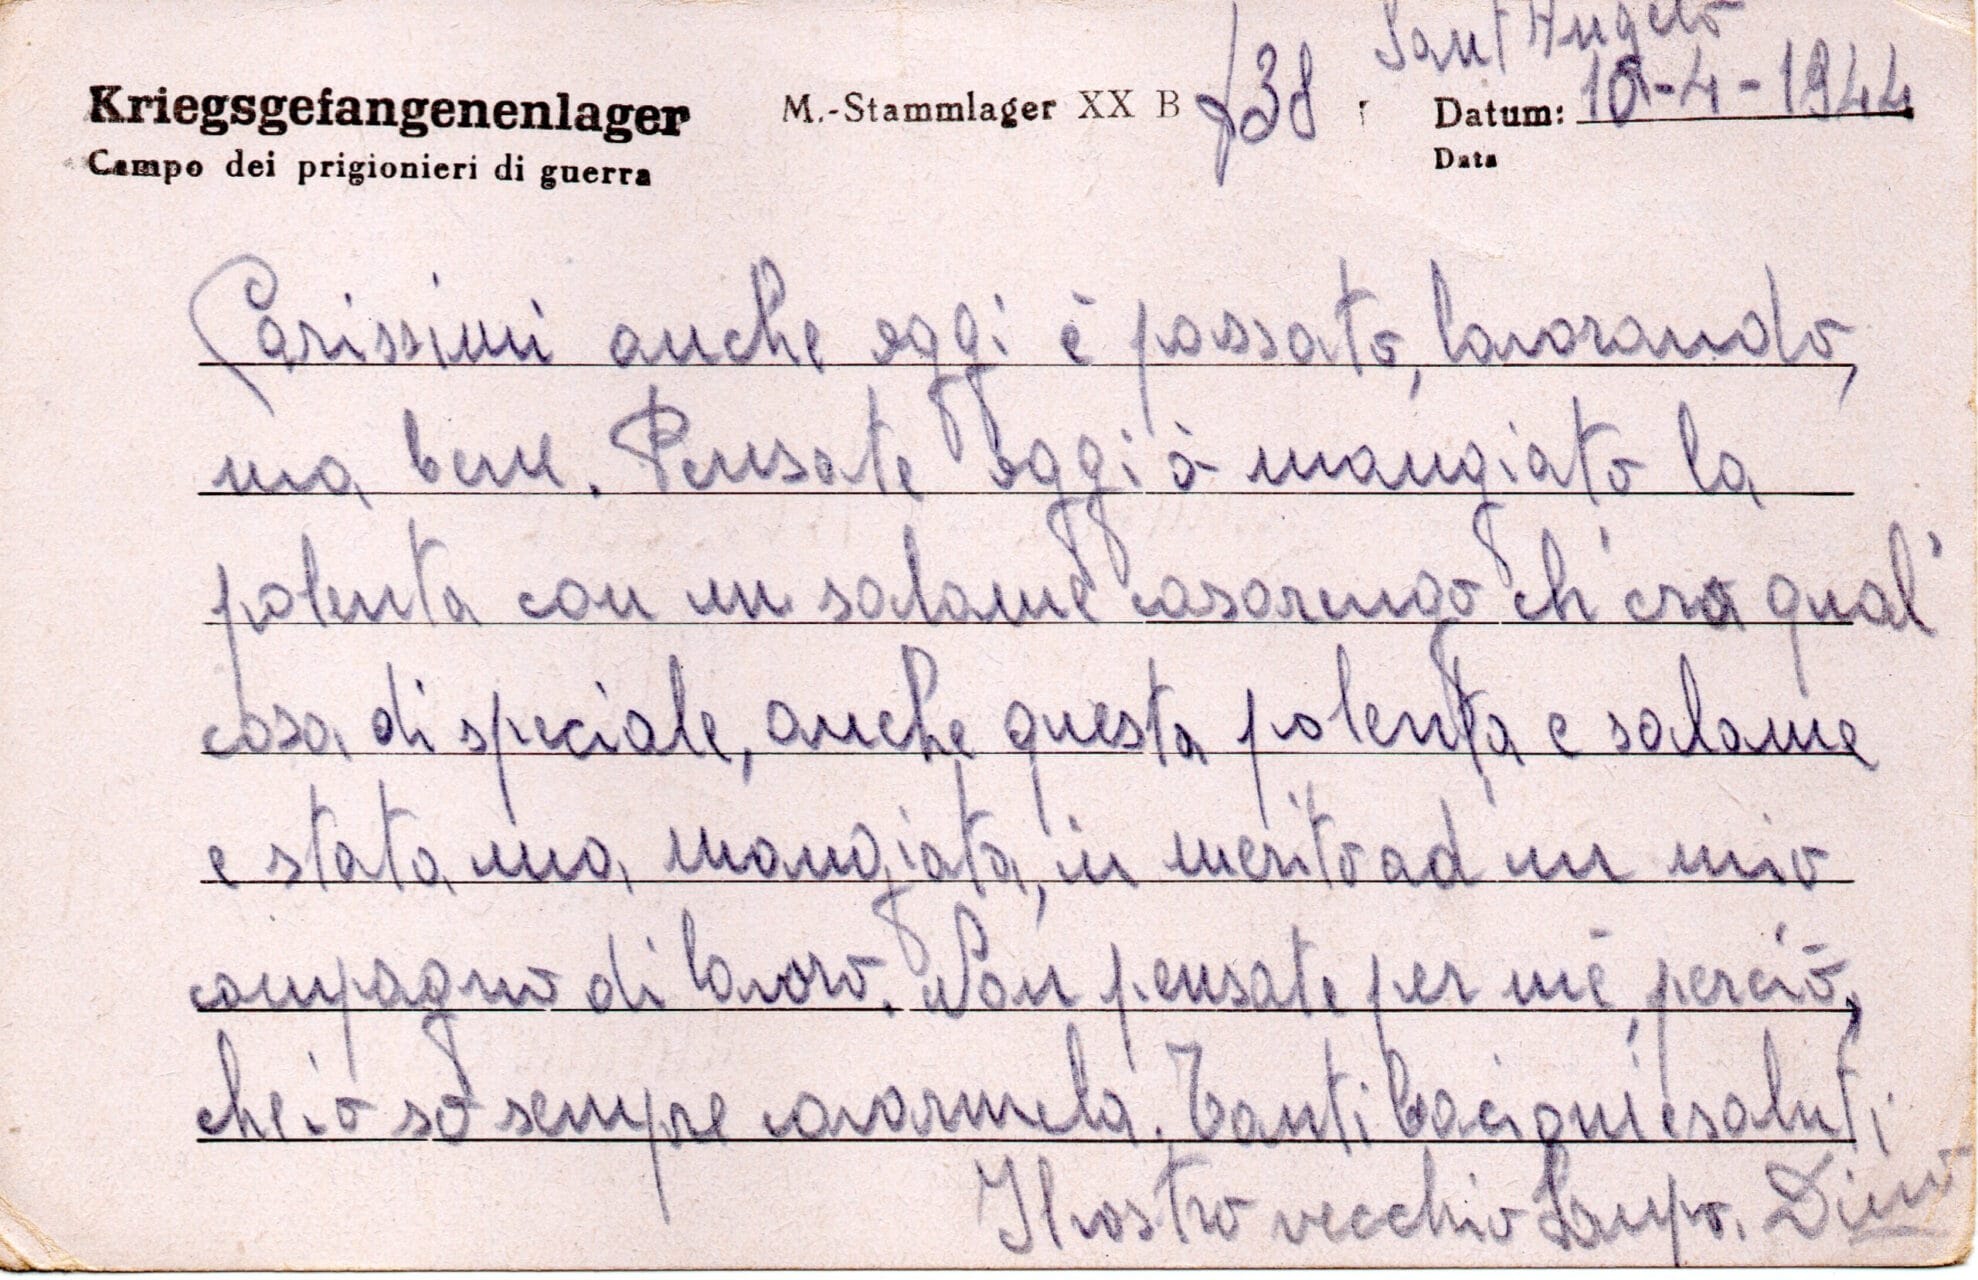 Sant Angelo
Kriegsgefangenenlager M.-Stammlager XX B 238 Datum: 10-4-1944
Campo dei prigionieri di guerra Data
Carissimi anche oggi è passato, lavorando,
ma bene. Pensate oggi ò mangiato la
polenta con un salame casarengo ch'era qual'
cosa di speciale, anche questa polenta e salame
e stata una mangiata, in merito ad un mio
compagno di lavoro. Non pensate per mè, perciò,
che io sò sempre cavarmela. Tanti bacioni e saluti
Il vostro vecchio Dino